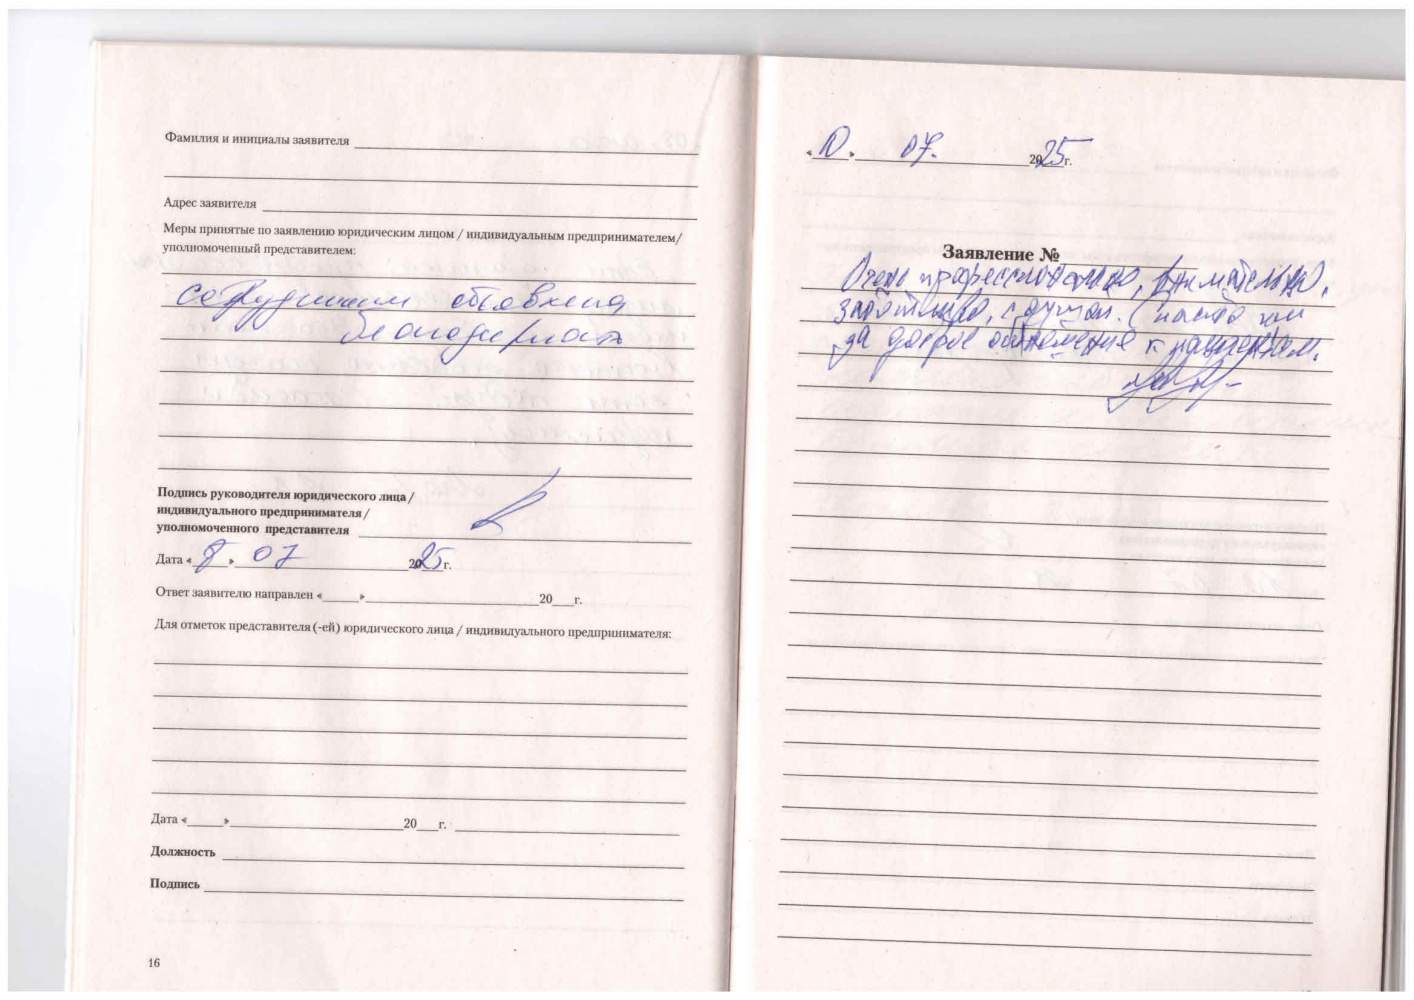 Фамилия и инициалы заявителя
Адрес заявителя
Меры принятые по заявлению юридическим лицом / индивидуальным предпринимателем/
уполномоченный представителем:
сотрудникам объявлена
благодарность
Подпись руководителя юридического лица /
индивидуального предпринимателя /
уполномоченного представителя
Дата «8» 07 2025г.
Ответ заявителю направлен «____»____20___г.
Для отметок представителя (-ей) юридического лица / индивидуального предпринимателя:
Дата «____»____20___г.
Должность
Подпись
16
«10» 07. 2025г.
Заявление №
Очень профессионально, внимательно,
заботливо, с душой. Спасибо им
за доброе отношение к пациентам.